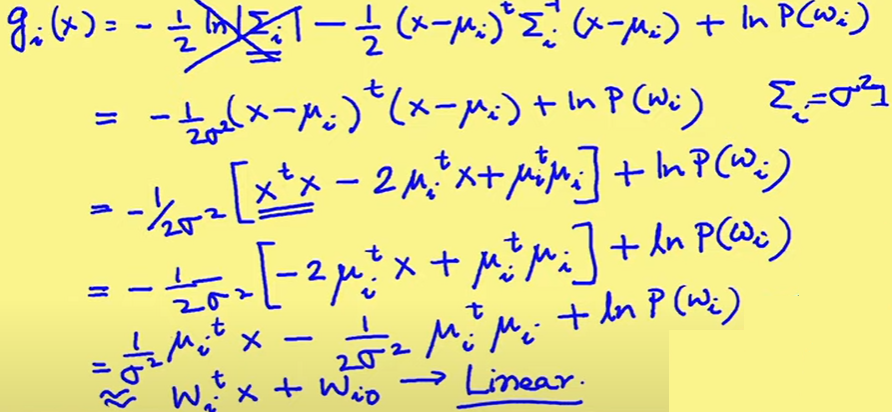 gᵢ(x) = - 1/2 ln|Σᵢ| - 1/2 (x-μᵢ)ᵗ Σᵢ⁻¹ (x-μᵢ) + ln P(ωᵢ)
= - 1/2σ² (x-μᵢ)ᵗ (x-μᵢ) + ln P(ωᵢ) Σᵢ = σ²I
= - 1/2σ² [xᵗx - 2μᵢᵗx + μᵢᵗμᵢ] + ln P(ωᵢ)
= - 1/2σ² [-2μᵢᵗx + μᵢᵗμᵢ] + ln P(ωᵢ)
= 1/σ² μᵢᵗ x - 1/2σ² μᵢᵗμᵢ + ln P(ωᵢ)
≈ Wᵢᵗ x + Wᵢ₀ → Linear.